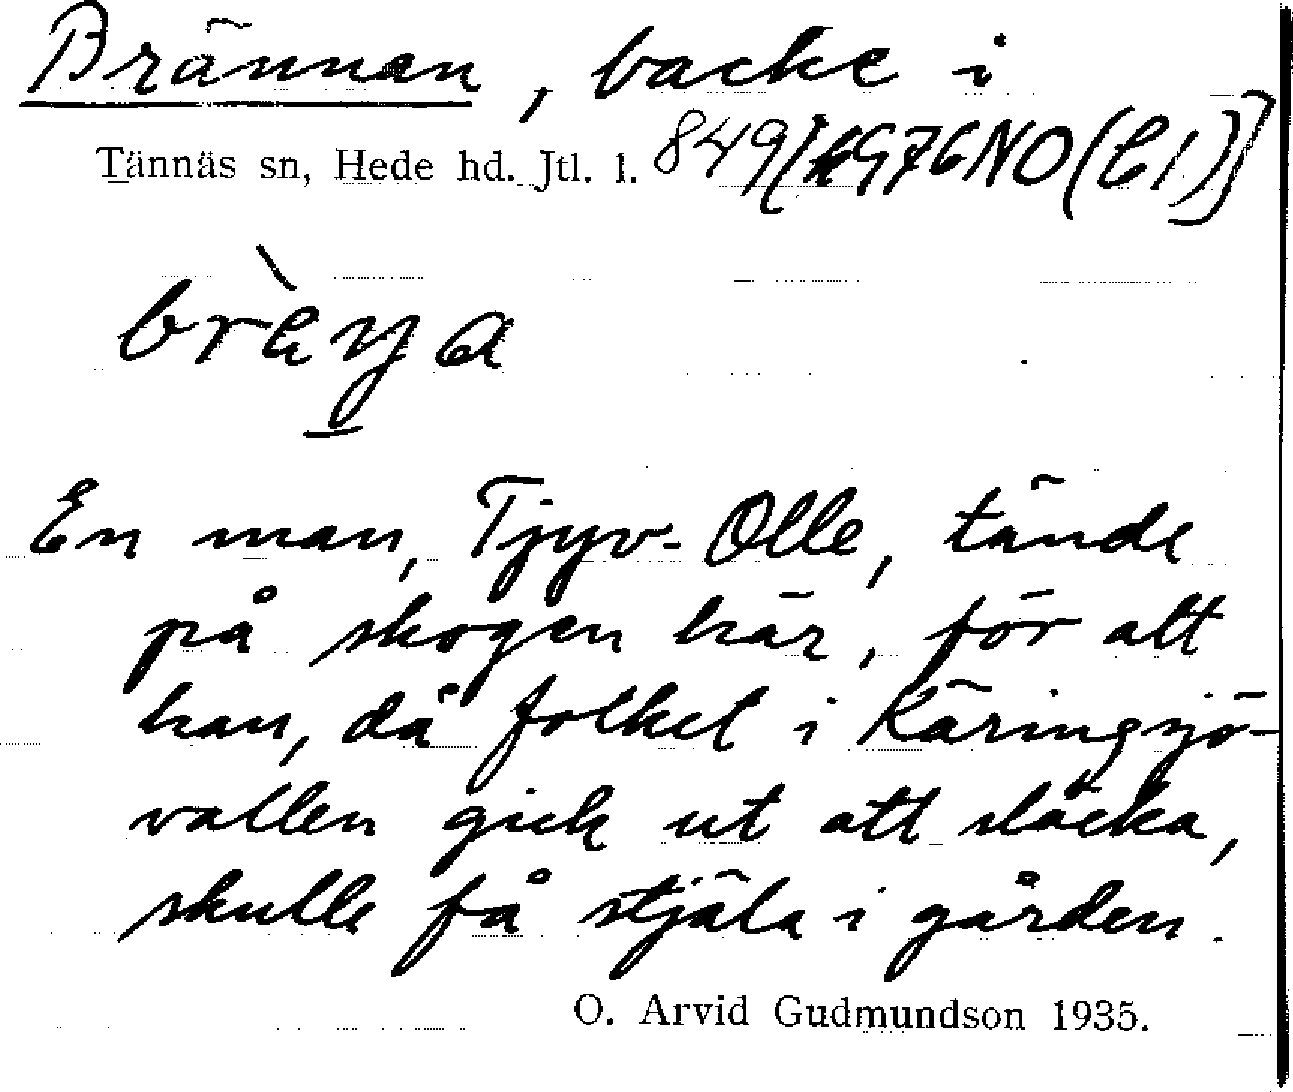 Brännan, backe i
Tännäs sn, Hede hd. Jtl. l. 849[1976NO(C1)]
brèɳa
En man, Tjyv-Olle, tände
på skogen här, för att
han, då folket i Käringsjö-
vallen gick ut att släcka,
skulle få stjäla i gården.
O. Arvid Gudmundson 1935.